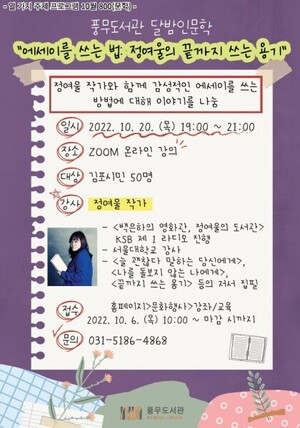 - 열 가지 주제 프로그램 10월 600(문학) -
풍무도서관 달밤인문학
"에세이를 쓰는 법: 정여울의 끝까지 쓰는 용기"
정여울 작가와 함께 감성적인 에세이를 쓰는
방법에 대해 이야기를 나눔
일시 2022. 10. 20. (목) 19:00 ~ 21:00
장소 ZOOM 온라인 강의
대상 김포시민 50명
강사 정여울 작가
- <백은하의 영화관, 정여울의 도서관>
KSB 제 1 라디오 진행
- 서울대학교 강사
- <늘 괜찮다 말하는 당신에게>,
<나를 돌보지 않는 나에게>,
<끝까지 쓰는 용기> 등의 저서 집필
접수 홈페이지>문화행사>강좌/교육
2022. 10. 6. (목) 10:00 ~ 마감 시까지
문의 031-5186-4868
풍무도서관